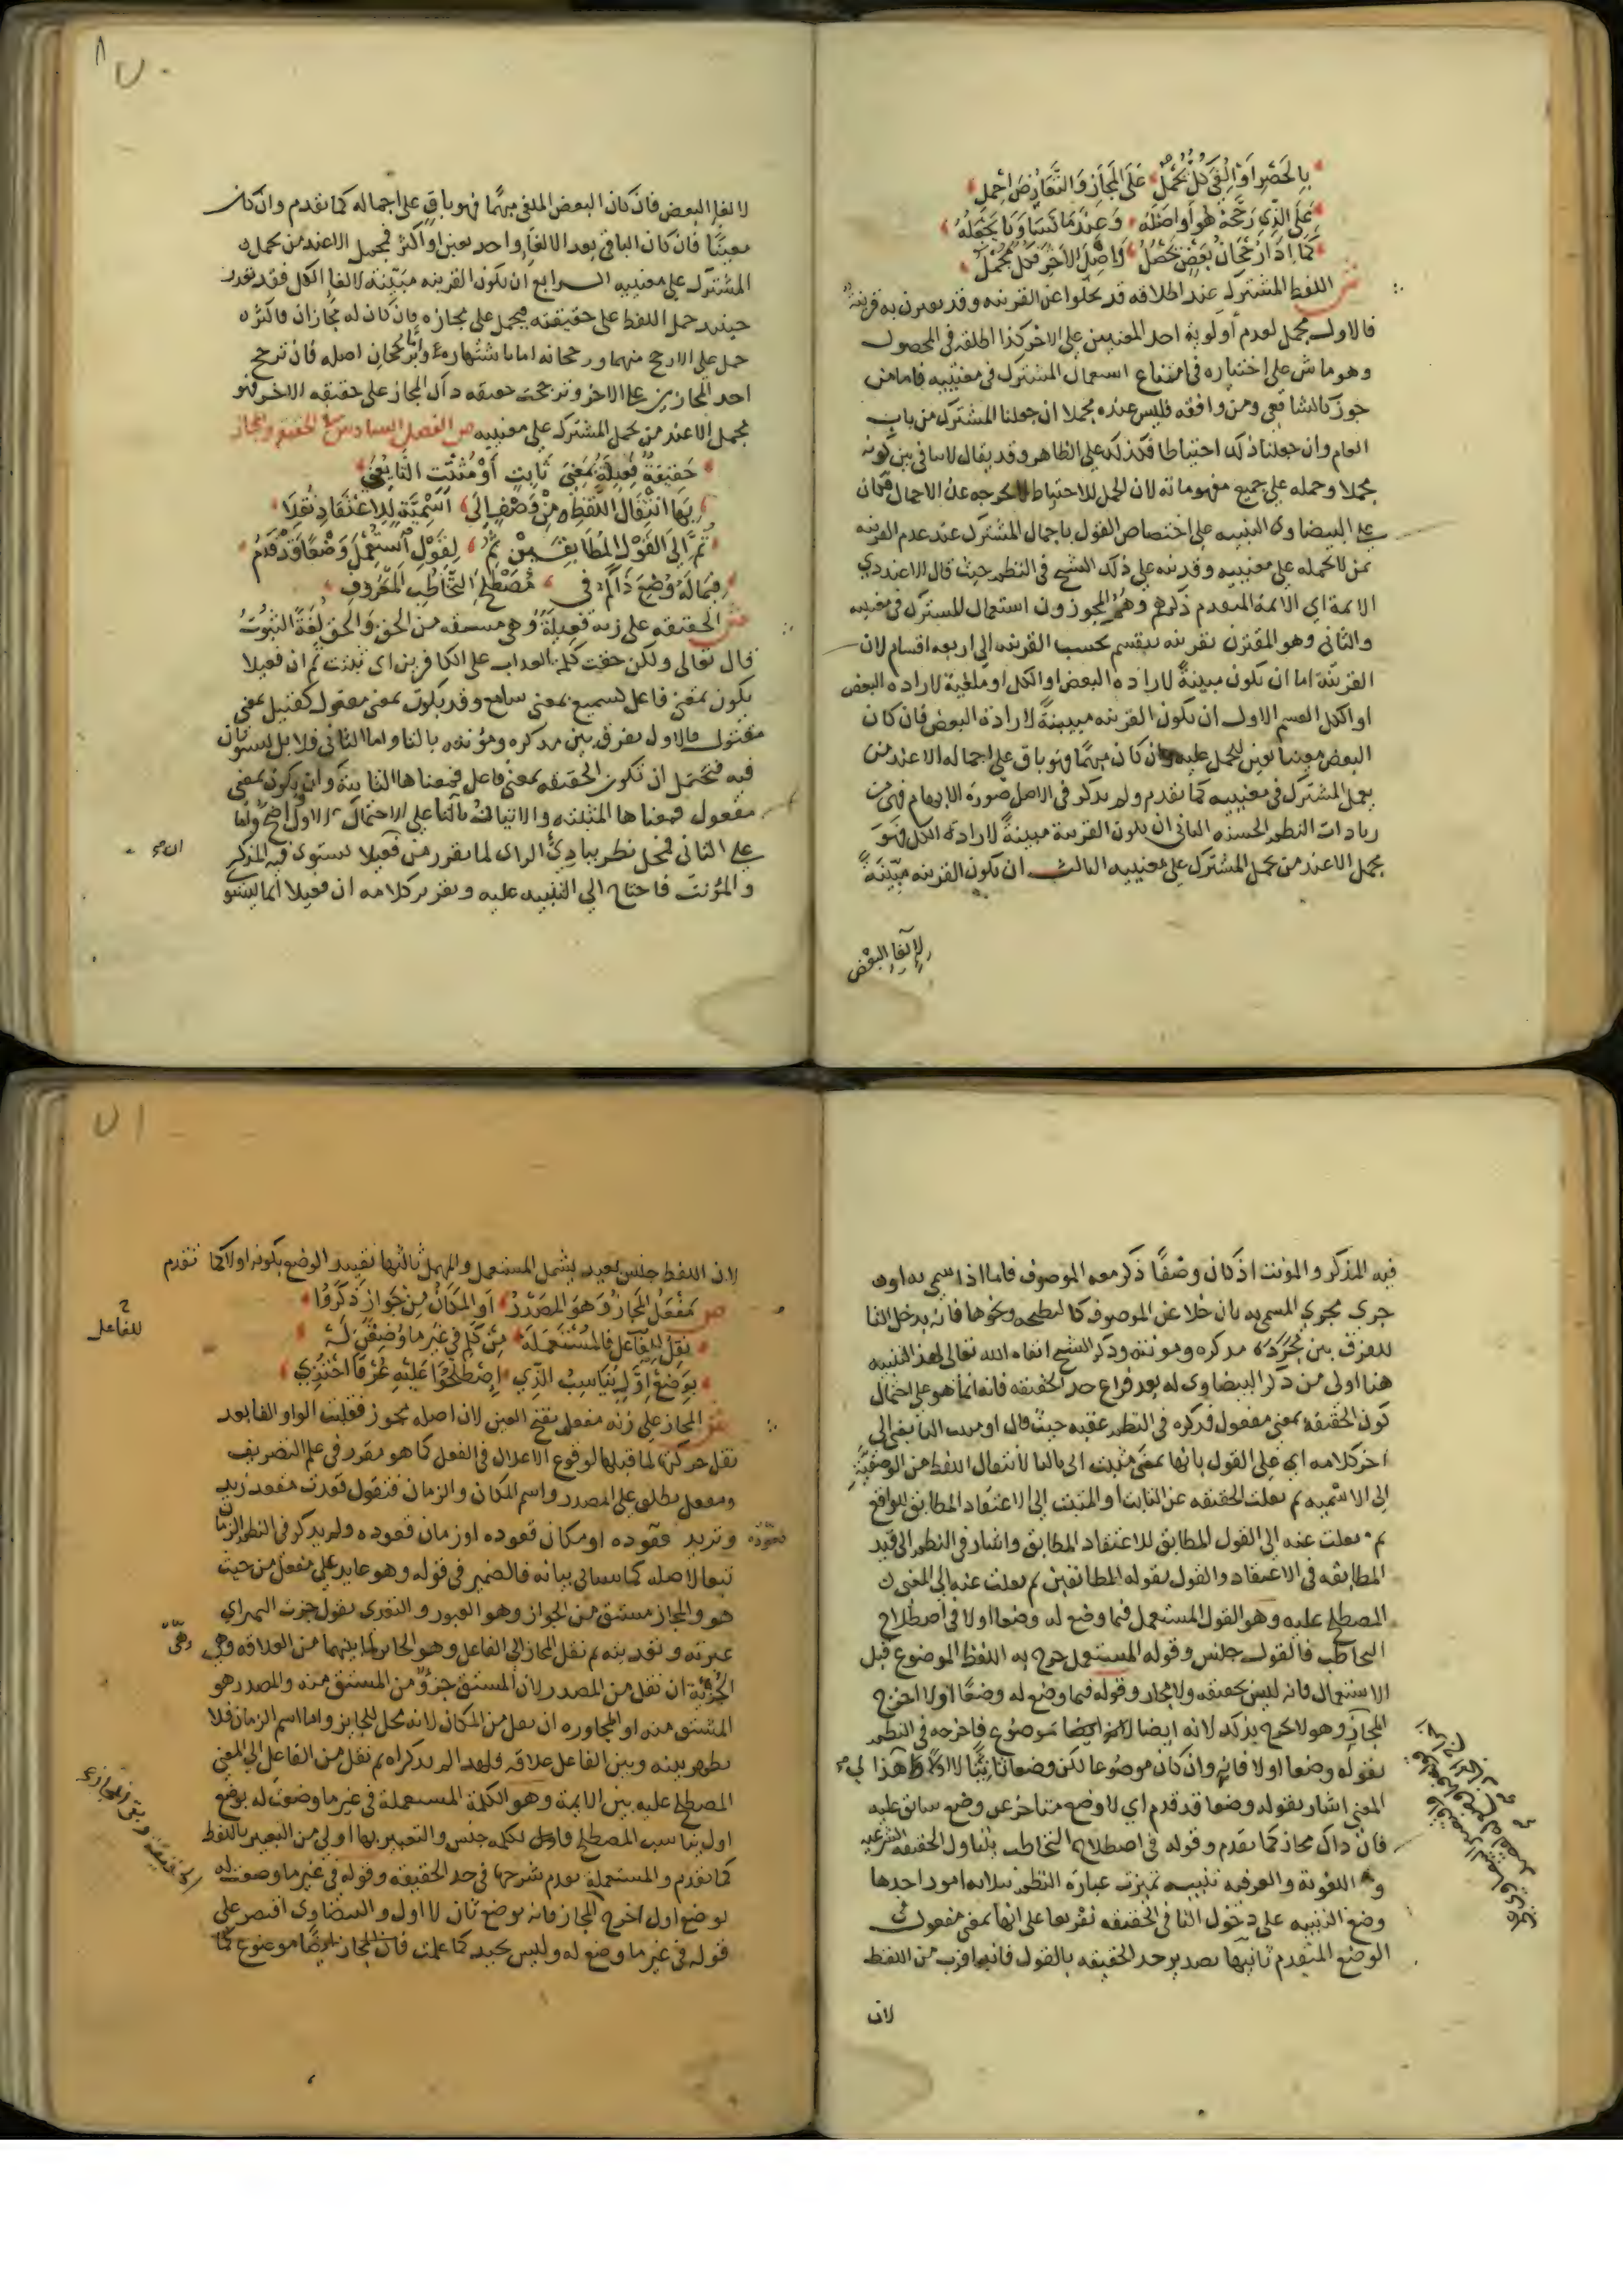 بِالحَصْرِ اَوْ اُلْغِيَ كُلٌّ يُحْمَلُ عَلَى المجَازِ وَالتَّعَارُضَ احْمِل
عَلَى الَّذِي رَجَّحَهُ هُوَ اَو اصْلُهُ وَعِنْدَمَا تَسَاوَيَا يَجْعَلُهُ
كَمَا اِذَا رُجْحَانُ بَعْضٍ يَحْصُلُ وَاصْلُ الاخَرِ فَكُلٌّ مُجْمَلُ
ش اللفظ المشترك عند اطلاقه قد يخلوا عن القرينه وقد يقترن به قرينة
فالاول مجمل لعدم أولوية احد المعنيين على الاخر كذا اطلقه في المحصول
وهو ماش على اختياره في امتناع استعمال المشترك في معنييه فاما من
جوز كالشافعي ومن وافقه فليس عنده مجملا ان جعلنا المشترك من باب
العام وان جعلنا ذلك احتياطا فكذلك على الظاهر وقد يقال لاتنافي بين كونه
مجملا وحمله على جميع مفهوماته لان الحمل للاحتياط لايخرجه عن الاجمال فكان
على البيضاوي التنبيه على اختصاص القول باجمال المشترك عند عدم القرينه
بمن لايحمله على معنييه وقد نبه على ذلك الشيخ في النظم حيث قال الا عند ذي
الائمة اي الائمة المتقدم ذكرهم وهم المجوزون استعمال المشترك في معنييه
والثاني وهو المقترن بقرينه ينقسم بحسب القرينه الى اربعه اقسام لان
القرينة اما ان تكون مبينةً لارادة البعض او الكل او ملغية لارادة البعض
او الكل القسم الاول ان تكون القرينه مبينةً لارادة البعض فان كان
البعض معينا تعين الحمل عليه وان كان مبهمًا فهو باق على اجماله الا عند من
يعمل المشترك في معنييه كما تقدم ولم يذكر في الاصل صورة الابهام فهي من
زيادات النظم الحسنه الثاني ان تكون القرينة مبينةً لارادة الكل فهو
مجمل الا عند من يحمل المشترك على معنييه الثالث ان تكون القرينه مبيّنةً
لالغا البعض
٧٠
لالغا البعض فان كان البعض الملغى مبهمًا فهو باقٍ على اجماله كما تقدم وان كان
معينًا فان كان الباقي بعد الالغاء واحد تعين او اكثر فمجمل الا عند من يحمل
المشترك على معنييه الرابع ان تكون القرينه مبيّنة لالغا الكل فقد تعذر
حينئذ حمل اللفظ على حقيقته فيحمل على مجازه فان كان له مجازان فاكثر
حمل على الارجح منهما ورجحانه اما باشتهاره وامّا برجحان اصله فان ترجح
احد المجازين على الاخر وترجحت حقيقه ذاك المجاز على حقيقه الاخر فهو
مجمل الا عند من يحمل المشترك على معنييه ص الفصل السادس في الحقيقه والمجاز
حَقِيقَةٌ فَعِيلَةٌ بمَعْنَى ثَابِتٍ أَوْ مُثْبَتٍ التَّا يُعْنَى
بِهَا انْتِقَالُ اللَّفْظِ مِنْ وَصْفٍ اِلَى اِسْمِيَّةٍ لِلاِعْتِقَادِ نُقِلَا
ثُمَّ اِلَى القَوْلِ المُطَابِقَيْنِ ثُمَّ لِقَوْلٍ اسْتُعْمِلَ وَضْعًا قَدْ قَدُمْ
فِيمَا لَهُ وُضِعَ ذَاكَ فِي مُصْطَلَحِ التَّخَاطُبِ المَعْرُوفِ
ش الحقيقه على زنه فَعِيلَة وهي مشتقه من الحق وَالحق لغَة الثبوت
قال تعالى ولكن حقت كلمة العذاب على الكافرين اى ثبتت ثم ان فعيلا
يكون بمعنى فاعل كسميع بمعنى سامع وقد يكون بمعنى مفعول كقتيل بمعنى
مقتول فالاول يفرق بين مذكره ومؤنثه بالتا واما الثاني فلا بل يستويان
فيه فيحتمل ان تكون الحقيقه بمعنى فاعل فمعناها الثابتة وان تكون بمعنى
مفعول فمعناها المثبته والاتيان بالتا على الاحتمال الاول واضح واما
على الثاني فمحل نظر ببادئ الراى لما تقرر من ان فعيلا يستوى فيه المذكر
والمؤنث فاحتاج الى التنبيه عليه وتقرير كلامه ان فعيلا انما يستو
فيه المذكر والمونث اذ كان وصْفًا ذكر معه الموصوف فاما اذا سمي به او
جرى مجرى المسمى به بان خلا عن الموصوف كالنطيحه ونحوها فانه يدخل التا
للفرق بين مذكره ومونثه وذكر الشيخ ابقاه الله تعالى لهذا التنبيه
هنا اولى من ذكر البيضاوي له بعد فراغ حد الحقيقه فانه انما هو على احتمال
كون الحقيقة بمعنى مفعول فذكره في النظم عقبه حيث قال او مثبت التا يعنى الى
اخر كلامه اي على القول بانها بمعنى مثبت اتى بالتا لانتقال اللفظ من الوصفيّةِ
الى الاسميه ثم نقلت الحقيقه عن الثابت او المثبت الى الاعتقاد المطابق للواقع
ثم نقلت عنه الى القول المطابق للاعتقاد المطابق واشار في النظم الى قيد
المطابقه في الاعتقاد والقول بقوله المطابقين ثم نقلت عنه الى المعنى
المصطلح عليه وهو القول المستعمل فيما وضع له وضعا اولا في اصطلاح
التخاطب فالقول جنس وقوله المستعمل خرج به اللفظ الموضوع قبل
الاستعمال فانه ليس بحقيقه ولا مجاز وقوله فيما وضع له وضعًا اولا اخرج
المجاز وهو لا يخرج بذلك لانه ايضا موضوع فاخرجه في النظم
بقوله وضعا اولا فانه وان كان موضوعا لكن وضعا ثانيًا لا اولا والى هذا
المعنى اشار بقوله وضعا قد قدم اي لا وضع متاخر عن وضع سابق عليه
فان ذاك مجاز كما تقدم وقوله في اصطلاح التخاطب يتناول الحقيقه الشرعيه
واللغوية والعرفيه تنبيه تميزت عبارة النظم بثلاثه امور احدها
وضع التنبيه على دخول التا في الحقيقه تفريعا على انها بمعنى مفعول في
الوضع المتقدم ثانيها تصدير حد الحقيقه بالقول فانه اقرب من اللفظ
لان
٧١
لان اللفظ جنس بعيد يشمل المستعمل والمهمل ثالثها تقييد الوضع بكونه اولا كما تقدم
ص مَفْعَلُ المجَازُ وَهوَ المصْدَرُ اَو المَكانُ مِنْ جَوَازٍ ذَكَرُوا
نُقِلَ لِلفَاعِل فَالمُسْتَعْمَلَه مِنْ كَلِمٍ في غَيْرِ مَا وُضِعْنَ لَهْ
بِوَضْعِ اَوَّلٍ يُنَاسِبُ الَّذِي اِصْطَلَحُوا عَلَيْهِ عُرْفًا احْتُذِي
للفاعل
ش المجاز على زنه مفعل بفتح العين لان اصله مجوز فقلبت الواو الفا بعد
نقل حركتها لما قبلها لوقوع الاعلال في الفعل كما هو مقرر في علم التصريف
ومفعل يطلق على المصدر واسم المكان والزمان فتقول قعدت مقعد زيد
وتريد قعوده او مكان قعوده او زمان قعوده ولم يذكر في النظم الزمان
قعوده
تبعا لاصله كما سياتي بيانه فالضمير في قوله وهو عايد على مفعل من حيث
هو والمجاز مشتق من الجواز وهو العبور والتعدى يقول جزت النهر اي
عبرته وتعديته ثم نقل المجاز الى الفاعل وهو الجائز لما بينهما من العلاقه وهي
وهي
الجُزئية ان نقل من المصدر لان المشتق جزؤ من المشتق منه والمصدر هو
المشتق منه او المجاوره ان نقل من المكان لانه محل للجايز واما اسم الزمان فلا
يظهر بينه وبين الفاعل علاقه فلهذا لم يذكراه ثم نقل من الفاعل الى المعنى
المصطلح عليه بين الايمة وهو الكلمة المستعملة في غير ما وضعت له بوضع
اول يناسب المصطلح فاول بكلمه جنس والتعبير بها اولى من التعبير باللفظ
كما تقدم والمستعملة تقدم شرحها في حد الحقيقه وقوله في غير ما وضعت له
بوضع اول اخرج المجاز فانه بوضع ثان لا اول والبيضاوي اقتصر على
قوله في غير ما وضع له وليس بجيد كما علمت فان المجاز ايضًا موضوع كما